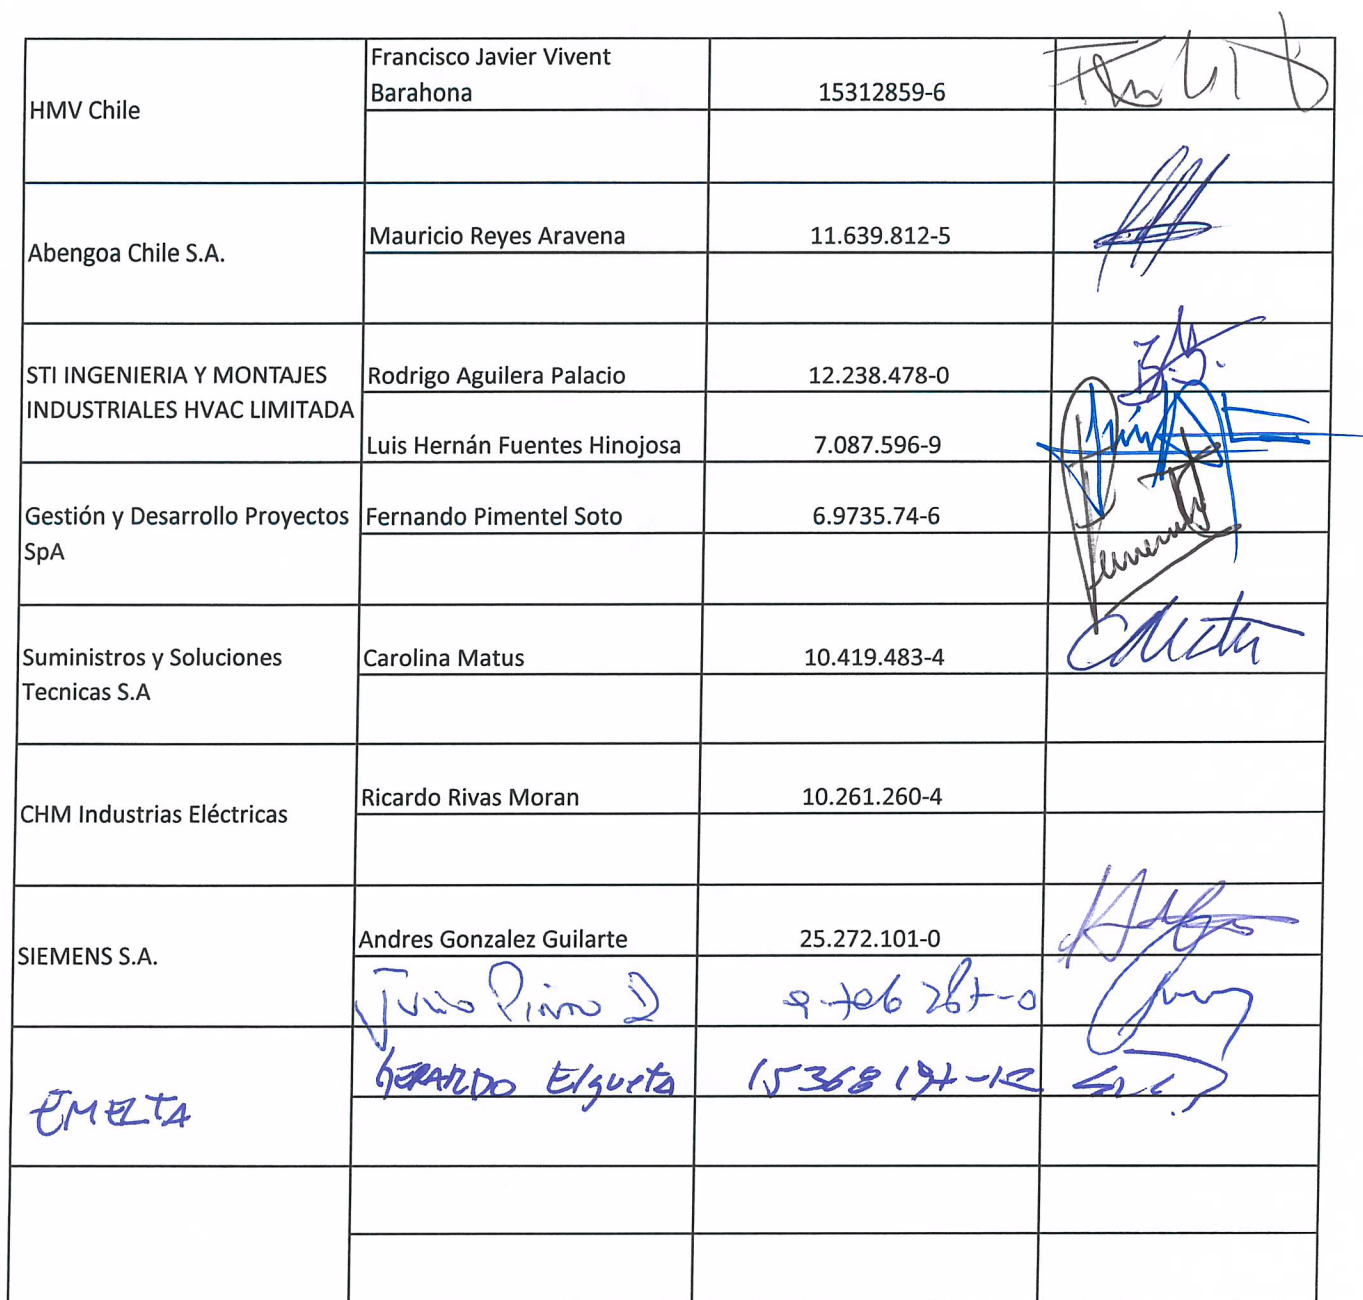 Francisco Javier Vivent
Barahona
15312859-6
HMV Chile
Mauricio Reyes Aravena
11.639.812-5
Abengoa Chile S.A.
STI INGENIERIA Y MONTAJES
INDUSTRIALES HVAC LIMITADA
Rodrigo Aguilera Palacio
12.238.478-0
Luis Hernán Fuentes Hinojosa
7.087.596-9
Gestión y Desarrollo Proyectos
SpA
Fernando Pimentel Soto
6.9735.74-6
Suministros y Soluciones
Tecnicas S.A
Carolina Matus
10.419.483-4
CHM Industrias Eléctricas
Ricardo Rivas Moran
10.261.260-4
SIEMENS S.A.
Andres Gonzalez Guilarte
25.272.101-0
GERARDO Elgueta
15368197-K
EMELTA